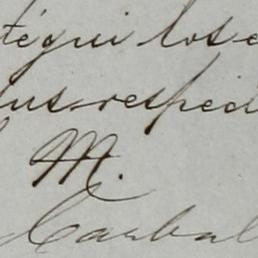 tégui los e
us respec
M.
Carbal